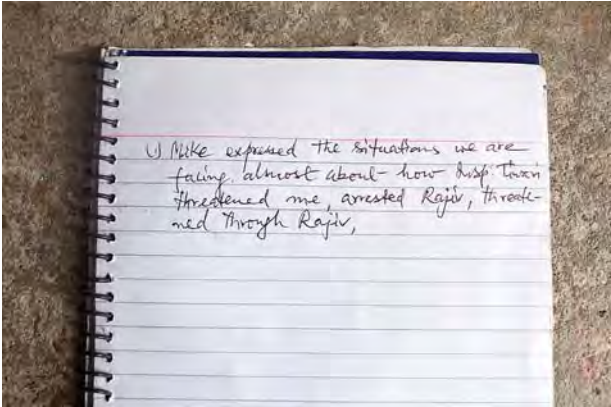 1) Mike expressed the situations we are
facing. almost about how Insp. Tiwari
threatened me, arrested Rajiv, threate-
ned through Rajiv,